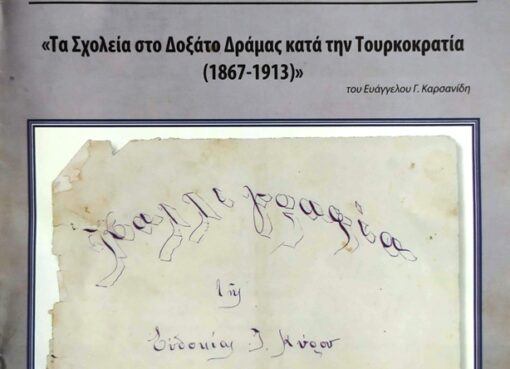 «Τα Σχολεία στο Δοξάτο Δράμας κατά την Τουρκοκρατία
(1867-1913)»
του Ευάγγελου Γ. Καρσανίδη
Καλλιγραφία
τῆς
Εὐδοκίας Ι. Κύρου